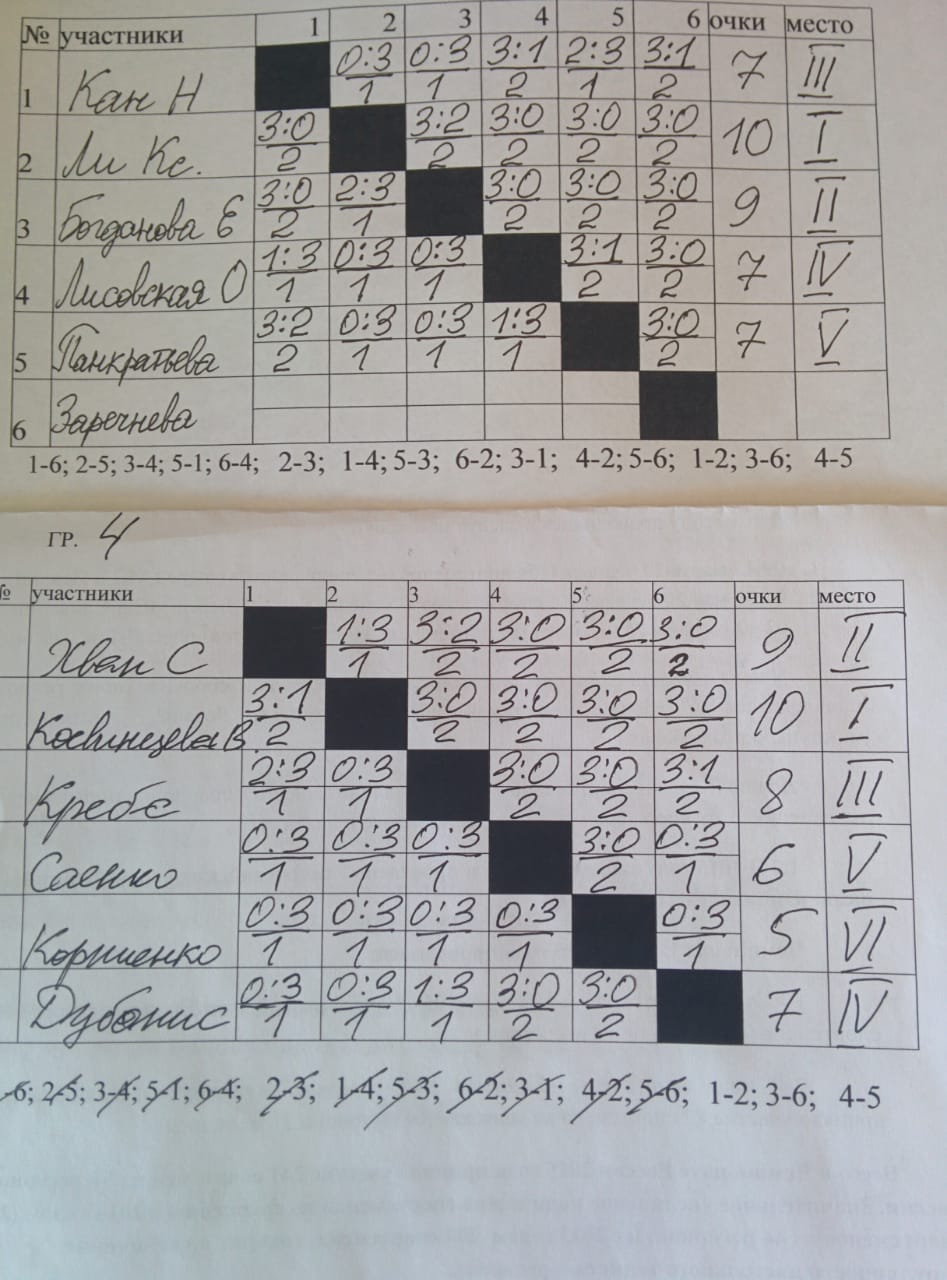 № участники 1 2 3 4 5 6 очки место
1 Кан Н 0:3 0:3 3:1 2:3 3:1 7 III
1 1 2 1 2
2 Ли Кс. 3:0 3:2 3:0 3:0 3:0 10 I
2 2 2 2 2
3 Богданова Е 3:0 2:3 3:0 3:0 3:0 9 II
2 1 2 2 2
4 Лисовская О 1:3 0:3 0:3 3:1 3:0 7 IV
1 1 1 2 2
5 Панкратьева 3:2 0:3 0:3 1:3 3:0 7 V
2 1 1 1 2
6 Заречнева
1-6; 2-5; 3-4; 5-1; 6-4; 2-3; 1-4; 5-3; 6-2; 3-1; 4-2; 5-6; 1-2; 3-6; 4-5
ГР. 4
№ участники 1 2 3 4 5 6 очки место
Хван С 1:3 3:2 3:0 3:0 3:0 9 II
1 2 2 2 2
Косвинцева В 3:1 3:0 3:0 3:0 3:0 10 I
2 2 2 2 2
Кребс 2:3 0:3 3:0 3:0 3:1 8 III
1 1 2 2 2
Саенко 0:3 0:3 0:3 3:0 0:3 6 V
1 1 1 2 1
Корниенко 0:3 0:3 0:3 0:3 0:3 5 VI
1 1 1 1 1
Дубонис 0:3 0:3 1:3 3:0 3:0 7 IV
1 1 1 2 2
-6; 2-5; 3-4; 5-1; 6-4; 2-3; 1-4; 5-3; 6-2; 3-1; 4-2; 5-6; 1-2; 3-6; 4-5